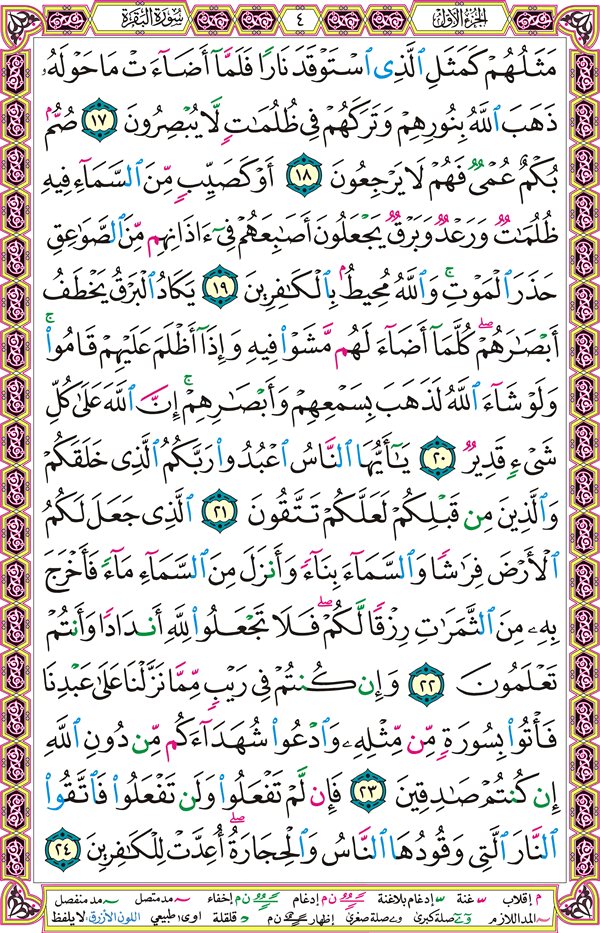 الجزء الأول
٤
سورة البقرة
مَثَلُهُمْ كَمَثَلِ ٱلَّذِى ٱسْتَوْقَدَ نَارًا فَلَمَّآ أَضَآءَتْ مَا حَوْلَهُۥ
ذَهَبَ ٱللَّهُ بِنُورِهِمْ وَتَرَكَهُمْ فِى ظُلُمَـٰتٍ لَّا يُبْصِرُونَ ١٧ صُمٌّۢ
بُكْمٌ عُمْىٌ فَهُمْ لَا يَرْجِعُونَ ١٨ أَوْ كَصَيِّبٍ مِّنَ ٱلسَّمَآءِ فِيهِ
ظُلُمَـٰتٌ وَرَعْدٌ وَبَرْقٌ يَجْعَلُونَ أَصَـٰبِعَهُمْ فِىٓ ءَاذَانِهِم مِّنَ ٱلصَّوَٰعِقِ
حَذَرَ ٱلْمَوْتِ ۚ وَٱللَّهُ مُحِيطٌۢ بِٱلْكَـٰفِرِينَ ١٩ يَكَادُ ٱلْبَرْقُ يَخْطَفُ
أَبْصَـٰرَهُمْ ۖ كُلَّمَآ أَضَآءَ لَهُم مَّشَوْا۟ فِيهِ وَإِذَآ أَظْلَمَ عَلَيْهِمْ قَامُوا۟ ۚ
وَلَوْ شَآءَ ٱللَّهُ لَذَهَبَ بِسَمْعِهِمْ وَأَبْصَـٰرِهِمْ ۚ إِنَّ ٱللَّهَ عَلَىٰ كُلِّ
شَىْءٍ قَدِيرٌ ٢٠ يَـٰٓأَيُّهَا ٱلنَّاسُ ٱعْبُدُوا۟ رَبَّكُمُ ٱلَّذِى خَلَقَكُمْ
وَٱلَّذِينَ مِن قَبْلِكُمْ لَعَلَّكُمْ تَتَّقُونَ ٢١ ٱلَّذِى جَعَلَ لَكُمُ
ٱلْأَرْضَ فِرَٰشًا وَٱلسَّمَآءَ بِنَآءً وَأَنزَلَ مِنَ ٱلسَّمَآءِ مَآءً فَأَخْرَجَ
بِهِۦ مِنَ ٱلثَّمَرَٰتِ رِزْقًا لَّكُمْ ۖ فَلَا تَجْعَلُوا۟ لِلَّهِ أَندَادًا وَأَنتُمْ
تَعْلَمُونَ ٢٢ وَإِن كُنتُمْ فِى رَيْبٍ مِّمَّا نَزَّلْنَا عَلَىٰ عَبْدِنَا
فَأْتُوا۟ بِسُورَةٍ مِّن مِّثْلِهِۦ وَٱدْعُوا۟ شُهَدَآءَكُم مِّن دُونِ ٱللَّهِ
إِن كُنتُمْ صَـٰدِقِينَ ٢٣ فَإِن لَّمْ تَفْعَلُوا۟ وَلَن تَفْعَلُوا۟ فَٱتَّقُوا۟
ٱلنَّارَ ٱلَّتِى وَقُودُهَا ٱلنَّاسُ وَٱلْحِجَارَةُ ۖ أُعِدَّتْ لِلْكَـٰفِرِينَ ٢٤
م إقلاب غنة إدغام بلاغنة ن م إدغام ن م إخفاء مد متصل مد منفصل
المد اللازم صلة كبرى صلة صغرى إظهار ن م قلقلة اوى: طبيعي اللون الأزرق: لا يلفظ